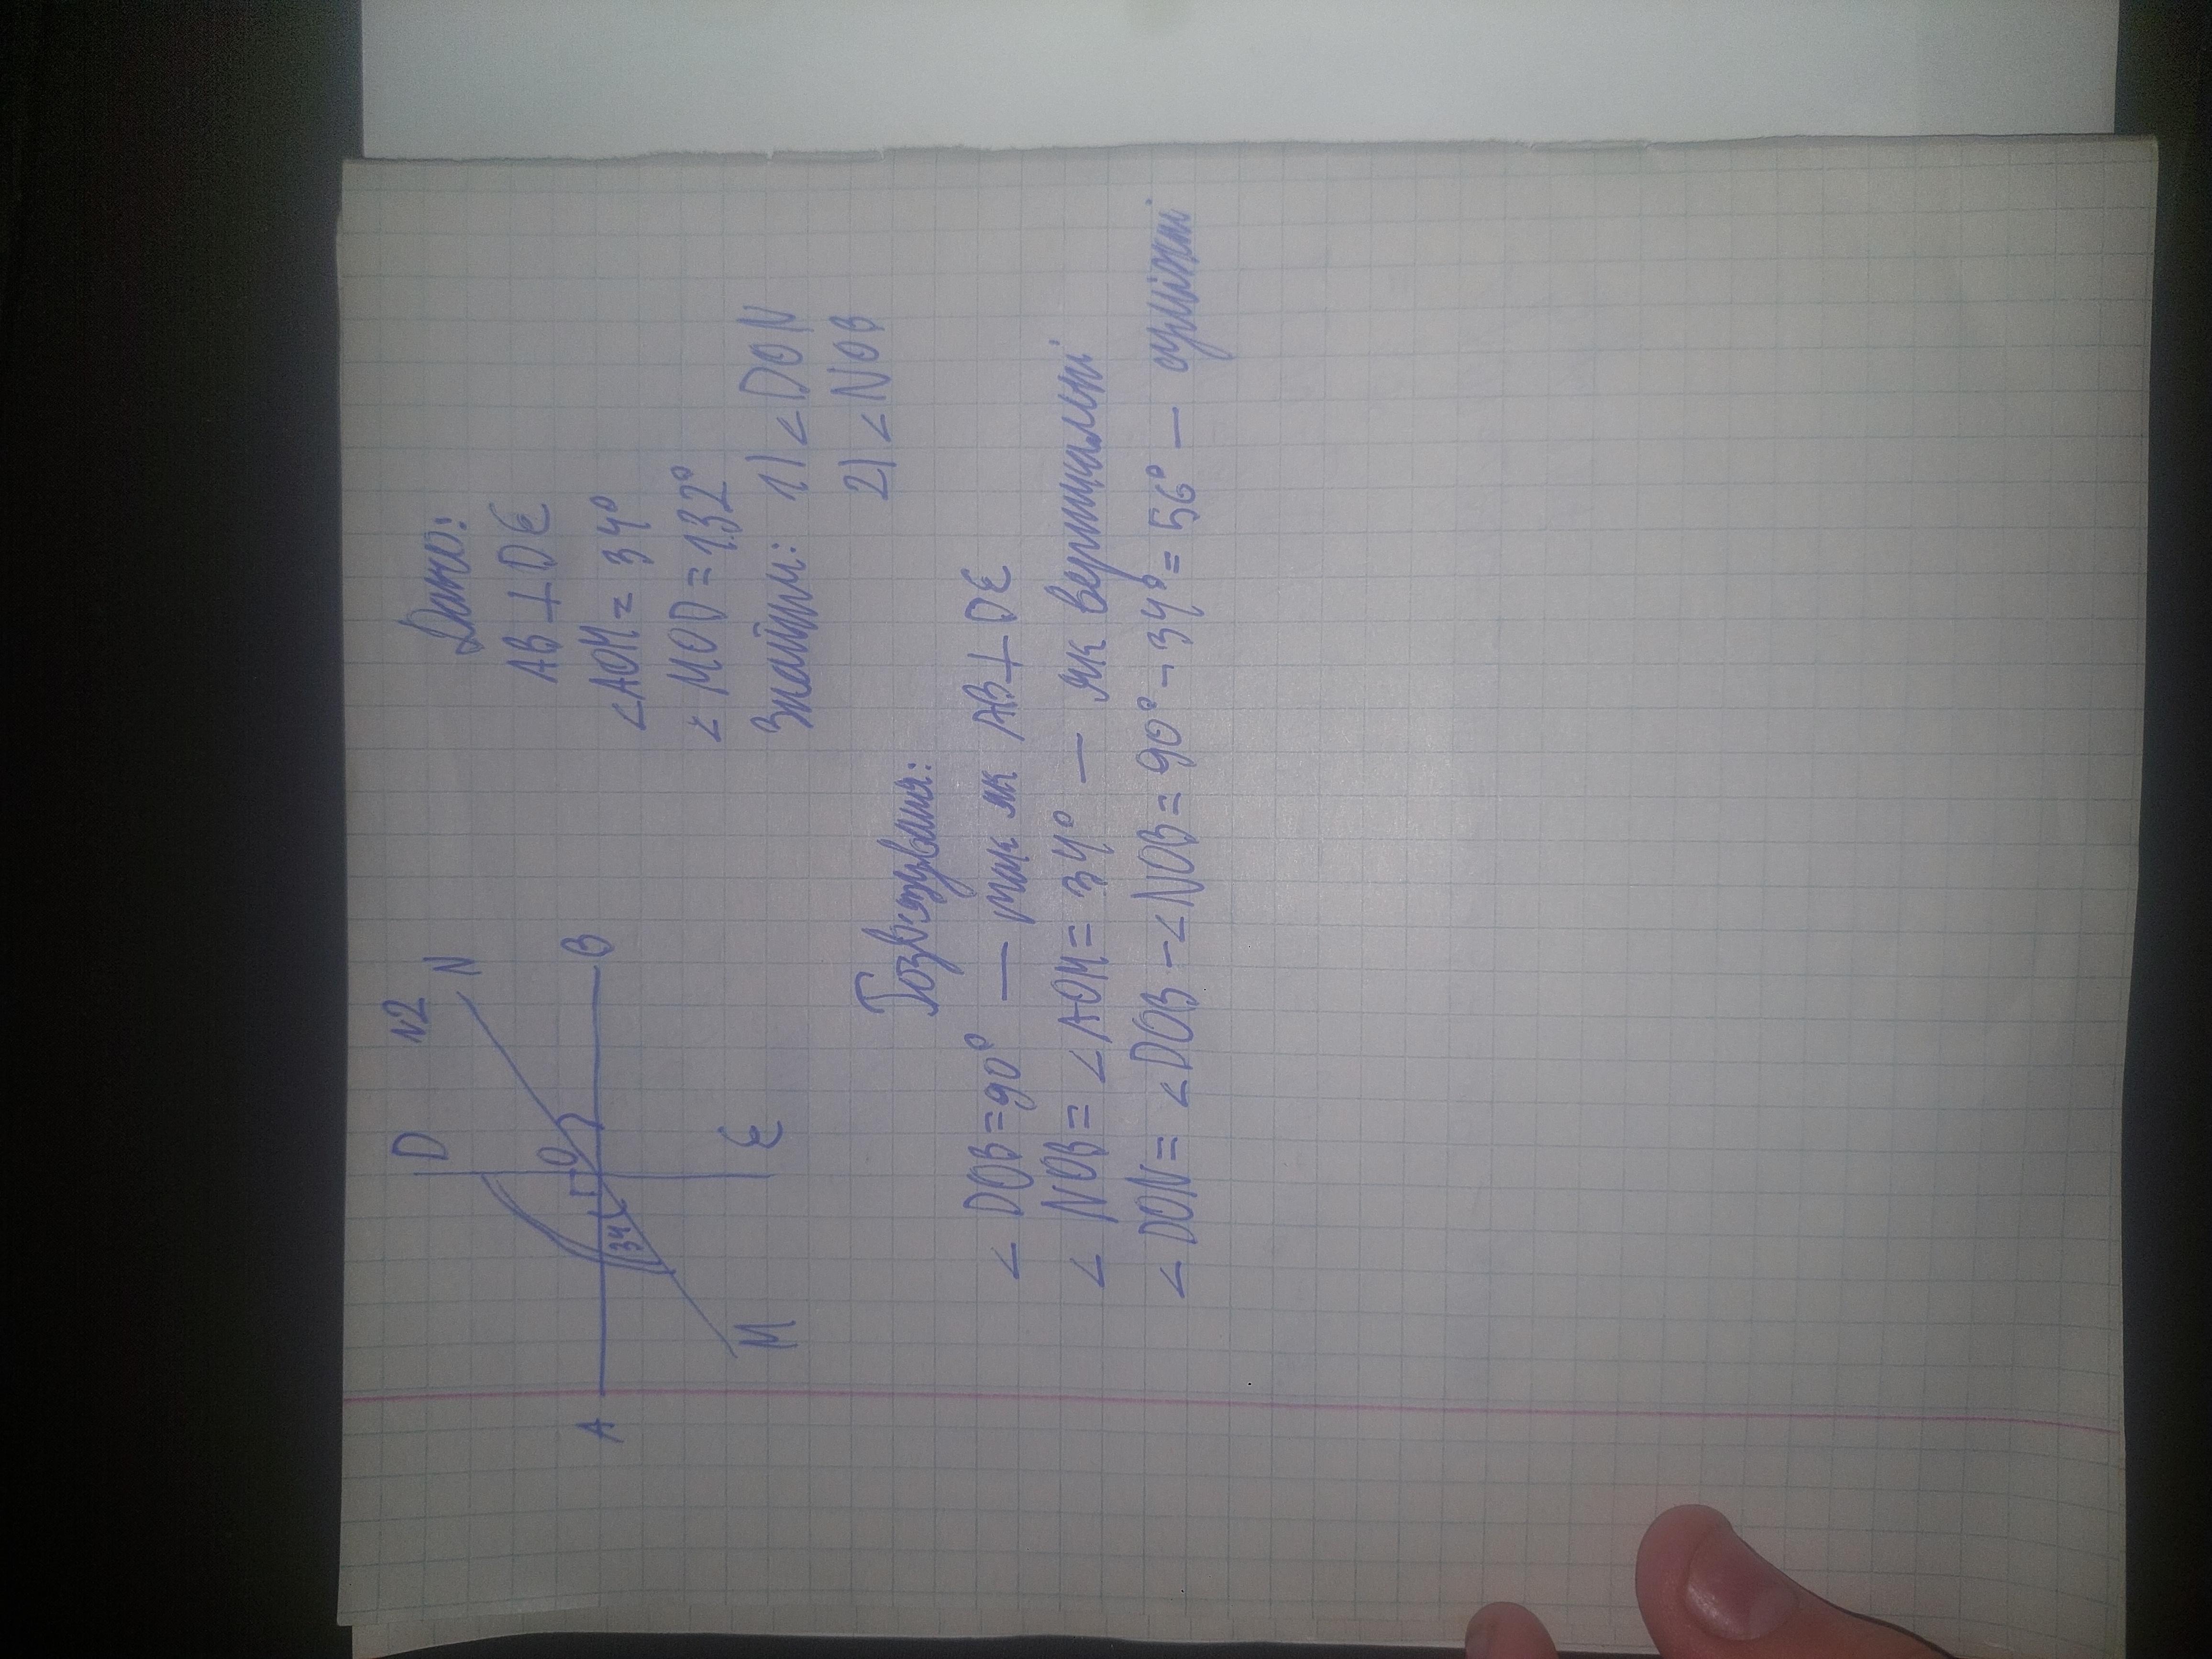 N2
D
N
A
O
B
34
M
E
Дано:
AB ⊥ DE
∠AOM = 34°
∠MOD = 132°
Знайти: 1) ∠DON
2) ∠NOB
Розв'язування:
∠DOB = 90° — так як AB ⊥ DE
∠NOB = ∠AOM = 34° — як вертикальні
∠DON = ∠DOB - ∠NOB = 90° - 34° = 56° — суміжні